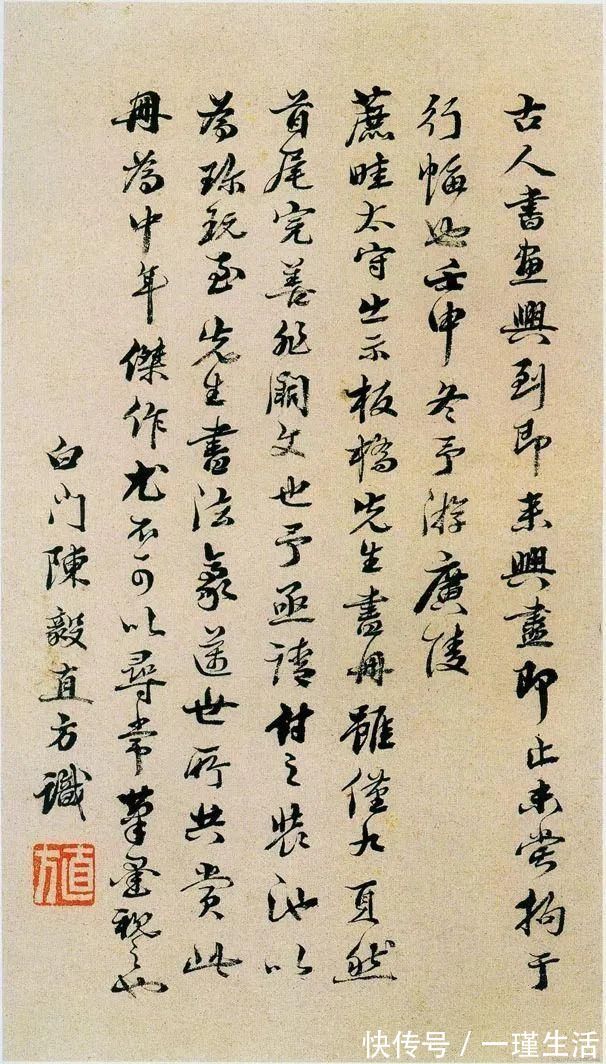 古人書畫興到即來興盡即止未嘗拘于
行幅也壬申冬予游廣陵
蔗畦太守出示板橋先生畫冊雖僅九頁然
首尾完善非闕文也予亟請付之裝池以
為珍玩至先生書法篆逕世所共賞此
冊為中年傑作尤不可以尋常筆墨視之也
白門陳毅直方識
直方
快传号/一瑾生活